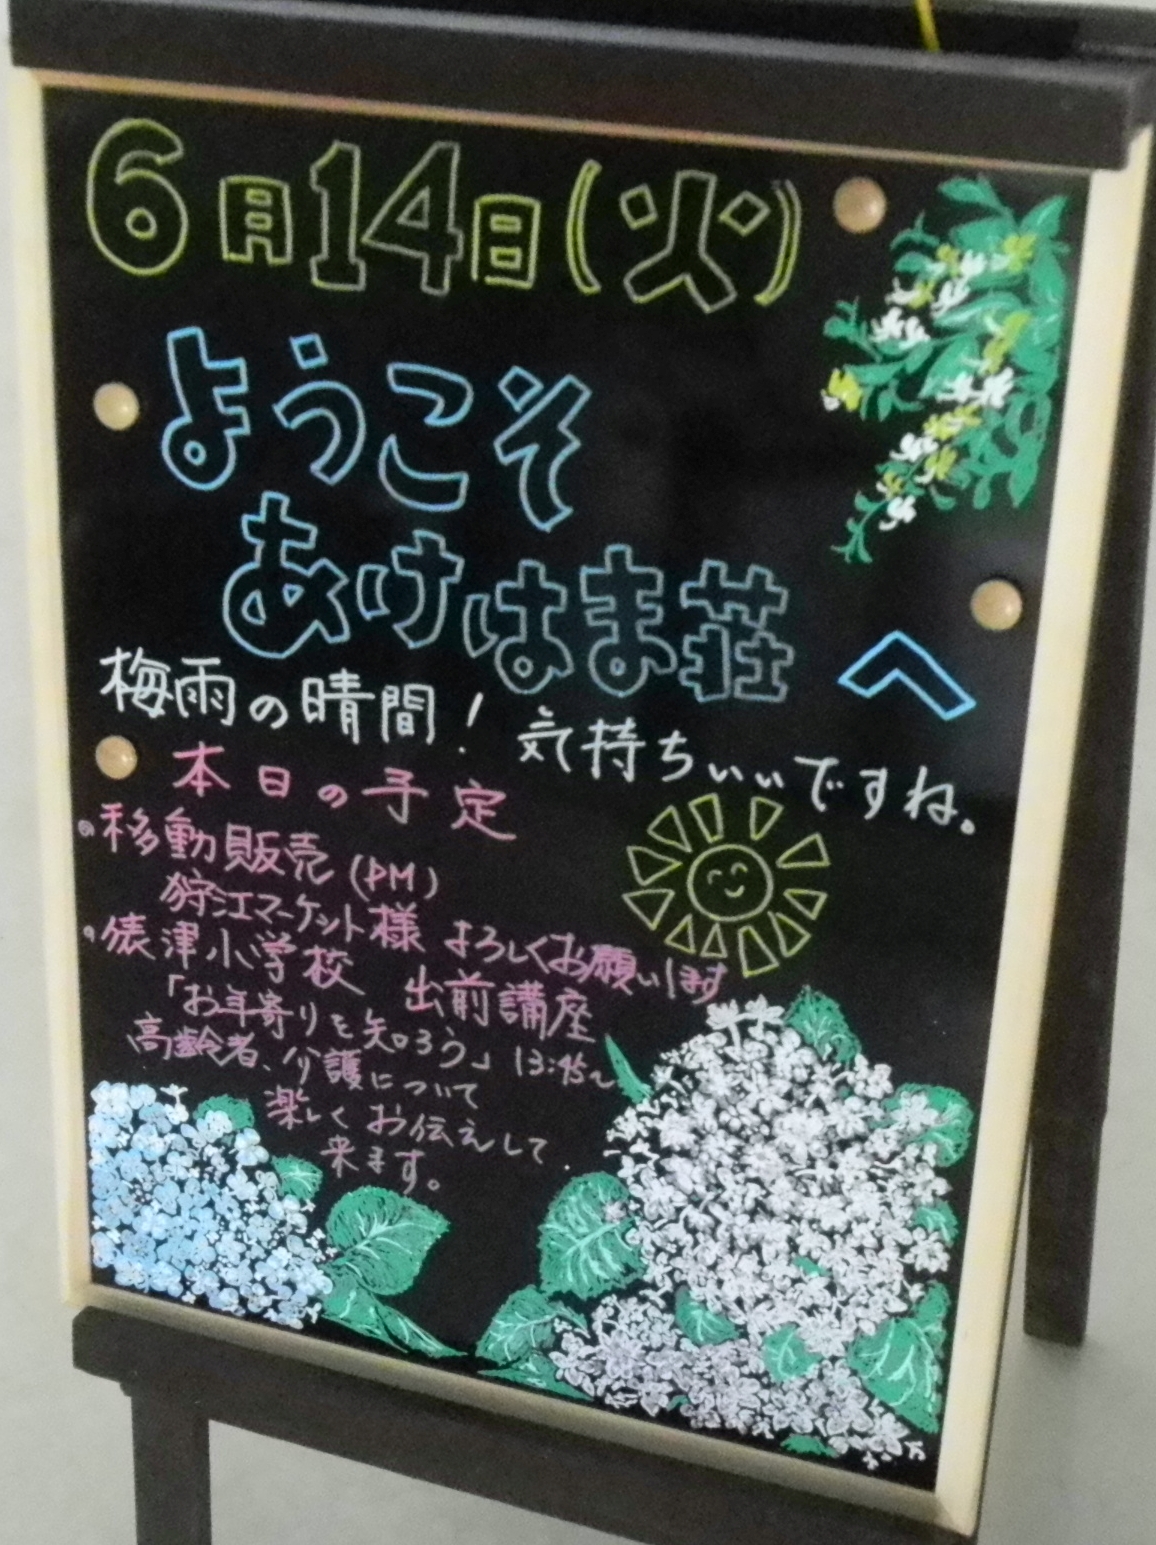 6月14日(火)
ようこそ
あけはま荘へ
梅雨の晴間! 気持ちぃぃですね。
本日の予定
・移動販売(PM)
狩江マーケット様 よろしくお願いします
・俵津小学校 出前講座
「お年寄りを知ろう」 13:45~
高齢者、介護について
楽しくお伝えして
来ます。